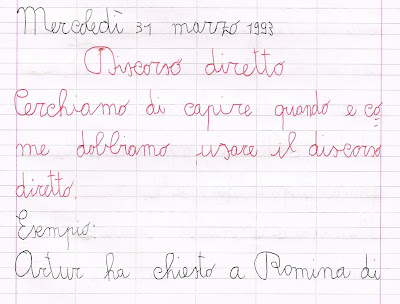 Mercoledì 31 marzo 1993
Discorso diretto
Cerchiamo di capire quando e co
me dobbiamo usare il discorso
diretto.
Esempio:
Artur ha chiesto a Romina di